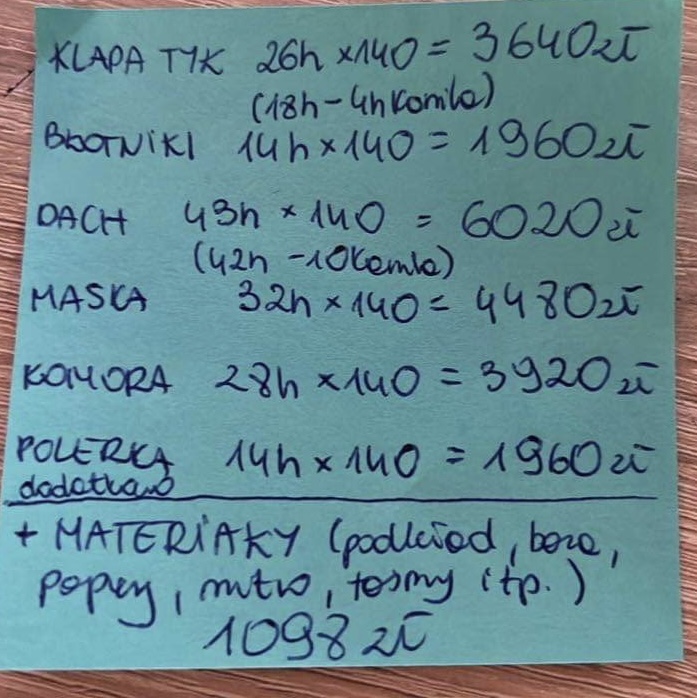 KLAPA TYK 26h x140 = 3640zł
(18h - 4h Kamila)
BŁOTNIKI 14h x 140 = 1960zł
DACH 43h x 140 = 6020zł
(42h - 10 Kamila)
MASKA 32h x 140 = 4480zł
KOMORA 28h x 140 = 3920zł
POLERKA 14h x 140 = 1960zł
dodatkowo
+ MATERIAŁY (podkład, baza,
papiery, nitro, taśmy itp.)
1098zł